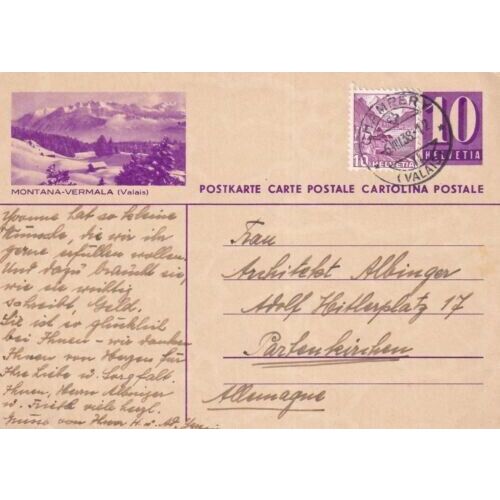 10
HELVETIA
CHAMPÉRY
(VALAIS)
10
HELVETIA
MONTANA-VERMALA (Valais)
POSTKARTE CARTE POSTALE CARTOLINA POSTALE
Yvonne hat so kleine
Wünsche, die wir ihr
gerne erfüllen wollen.
Und dazu braucht sie,
wie sie
schreibt, Geld.
Sie ist so glücklich
bei Ihnen - wir danken
Ihnen von Herzen für
Ihre Liebe u. Sorgfalt.
Ihnen, Herrn Albinger
u. viele herzl.
von Ihrer H. u.
Frau
Architekt Albinger
Adolf Hitlerplatz 17
Partenkirchen
Allemagne